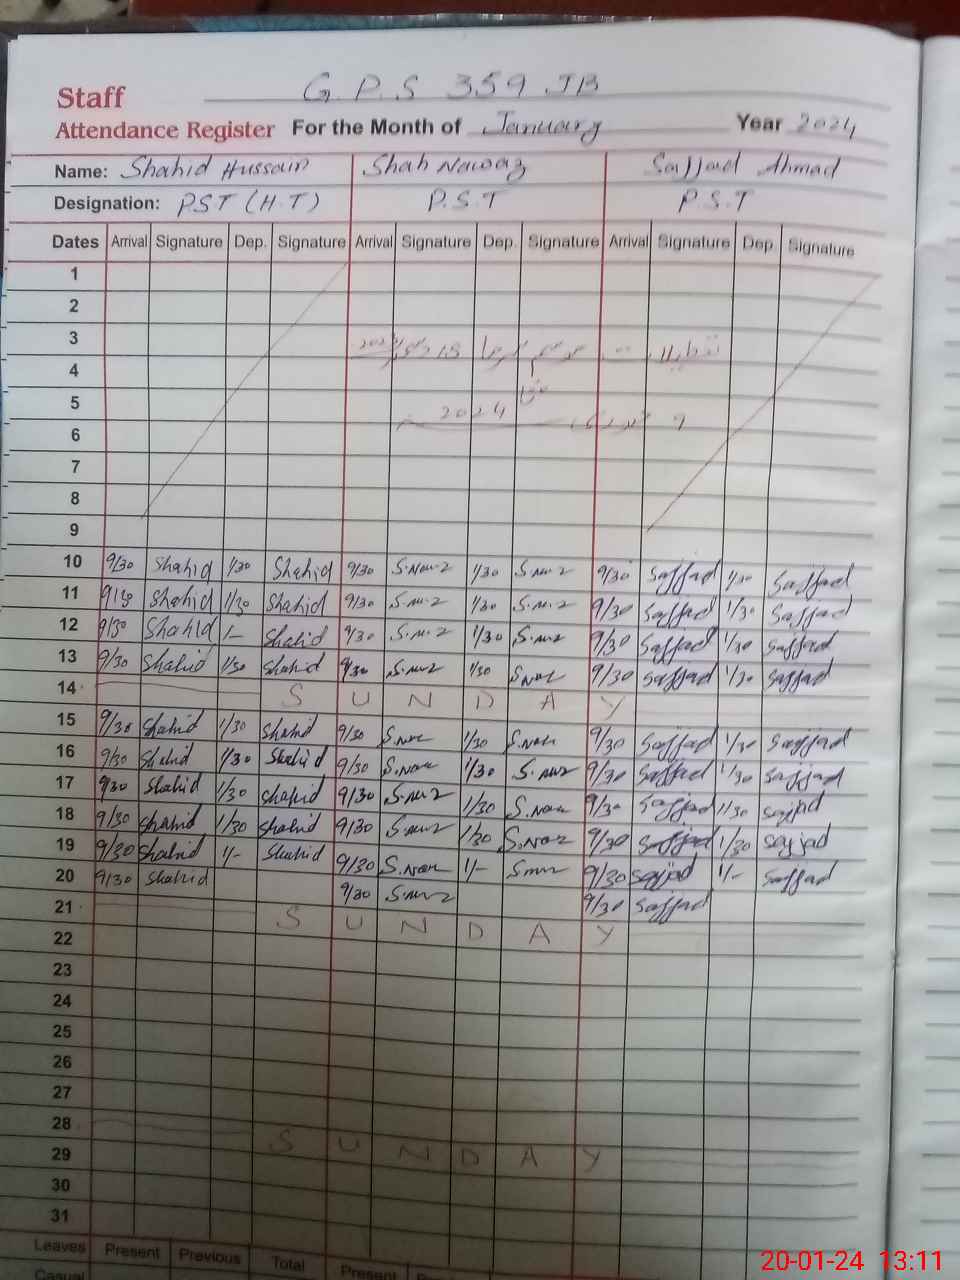 G.P.S 359 JB
Staff
Attendance Register For the Month of January Year 2024
Name: Shahid Hussain Shah Nawaz Sajjad Ahmad
Designation: PST (H.T) P.S.T P.S.T
Dates Arrival Signature Dep. Signature Arrival Signature Dep. Signature Arrival Signature Dep. Signature
1
2
3
تعطیلات موسم سرما
4
5
2024
6
7
8
9
10 9/30 Shahid 1/30 Shahid 9/30 1/30 9/30 Sajjad 1/30 Sajjad
11 Shahid 1/30 Shahid 9/30 1/30 9/30 Sajjad 1/30 Sajjad
12 9/30 Shahid 1/- Shahid 9/30 1/30 9/30 Sajjad 1/30 Sajjad
13 9/30 Shahid 1/30 Shahid 9/30 1/30 9/30 Sajjad 1/30 Sajjad
14 SUNDAY
15 9/30 Shahid 1/30 Shahid 9/30 1/30 9/30 Sajjad 1/30 Sajjad
16 9/30 Shahid 1/30 Shahid 9/30 1/30 9/30 Sajjad 1/30 Sajjad
17 9/30 Shahid 1/30 Shahid 9/30 1/30 9/30 Sajjad 1/30 Sajjad
18 9/30 Shahid 1/30 Shahid 9/30 1/30 9/30 Sajjad 1/30 Sajjad
19 9/30 Shahid 1/- Shahid 9/30 1/- 9/30 Sajjad 1/- Sajjad
20 9/30 Shahid 9/30 9/30 Sajjad
21 SUNDAY
22
23
24
25
26
27
28 SUNDAY
29
30
31
Leaves Present Previous Total Present
Casual
20-01-24 13:11